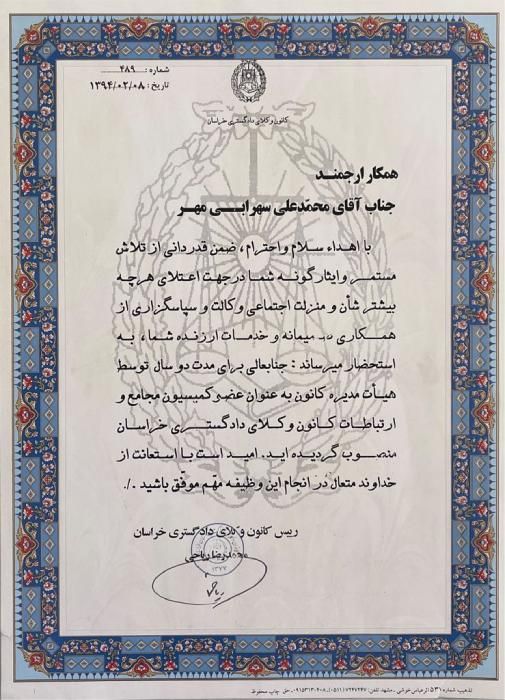 شماره: ۴۸۹
تاریخ: ۱۳۹۴/۰۲/۰۸
کانون وکلای دادگستری خراسان
همکار ارجمند
جناب آقای محمدعلی سهرابی مهر
با اهداء سلام و احترام، ضمن قدردانی از تلاش
مستمر و ایثارگونه شما درجهت اعتلای هرچه
بیشتر شأن و منزلت اجتماعی وکالت و سپاسگزاری از
همکاری صمیمانه و خدمات ارزنده شما، به
استحضار میرساند: جنابعالی برای مدت دو سال توسط
هیأت مدیره کانون به عنوان عضو کمیسیون مجامع و
ارتباطات کانون وکلای دادگستری خراسان
منصوب گردیده اید. امید است با استعانت از
خداوند متعال در انجام این وظیفه مهم موفق باشید ./.
رییس کانون وکلای دادگستری خراسان
محمدرضا ریاحی
۱۳۷۷
تذهیب شماره ۵۳۱ اثر عباس خوشی - مشهد تلفن: ۷۲۴۷۲۴۷ (۰۵۱۱) - ۰۹۱۵۳۱۳۰۴۰۸ حق چاپ محفوظ